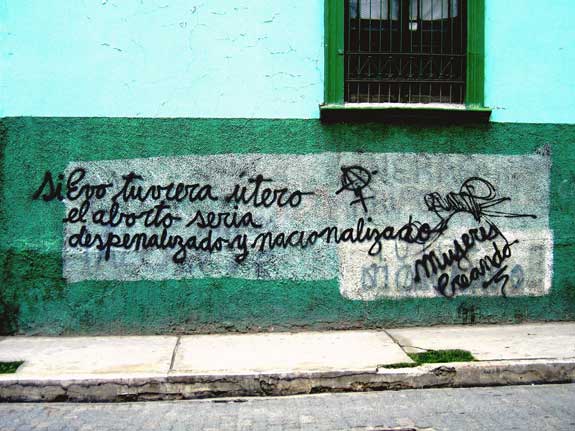 si Evo tuviera útero
el aborto sería
despenalizado y nacionalizado
Mujeres
Creando